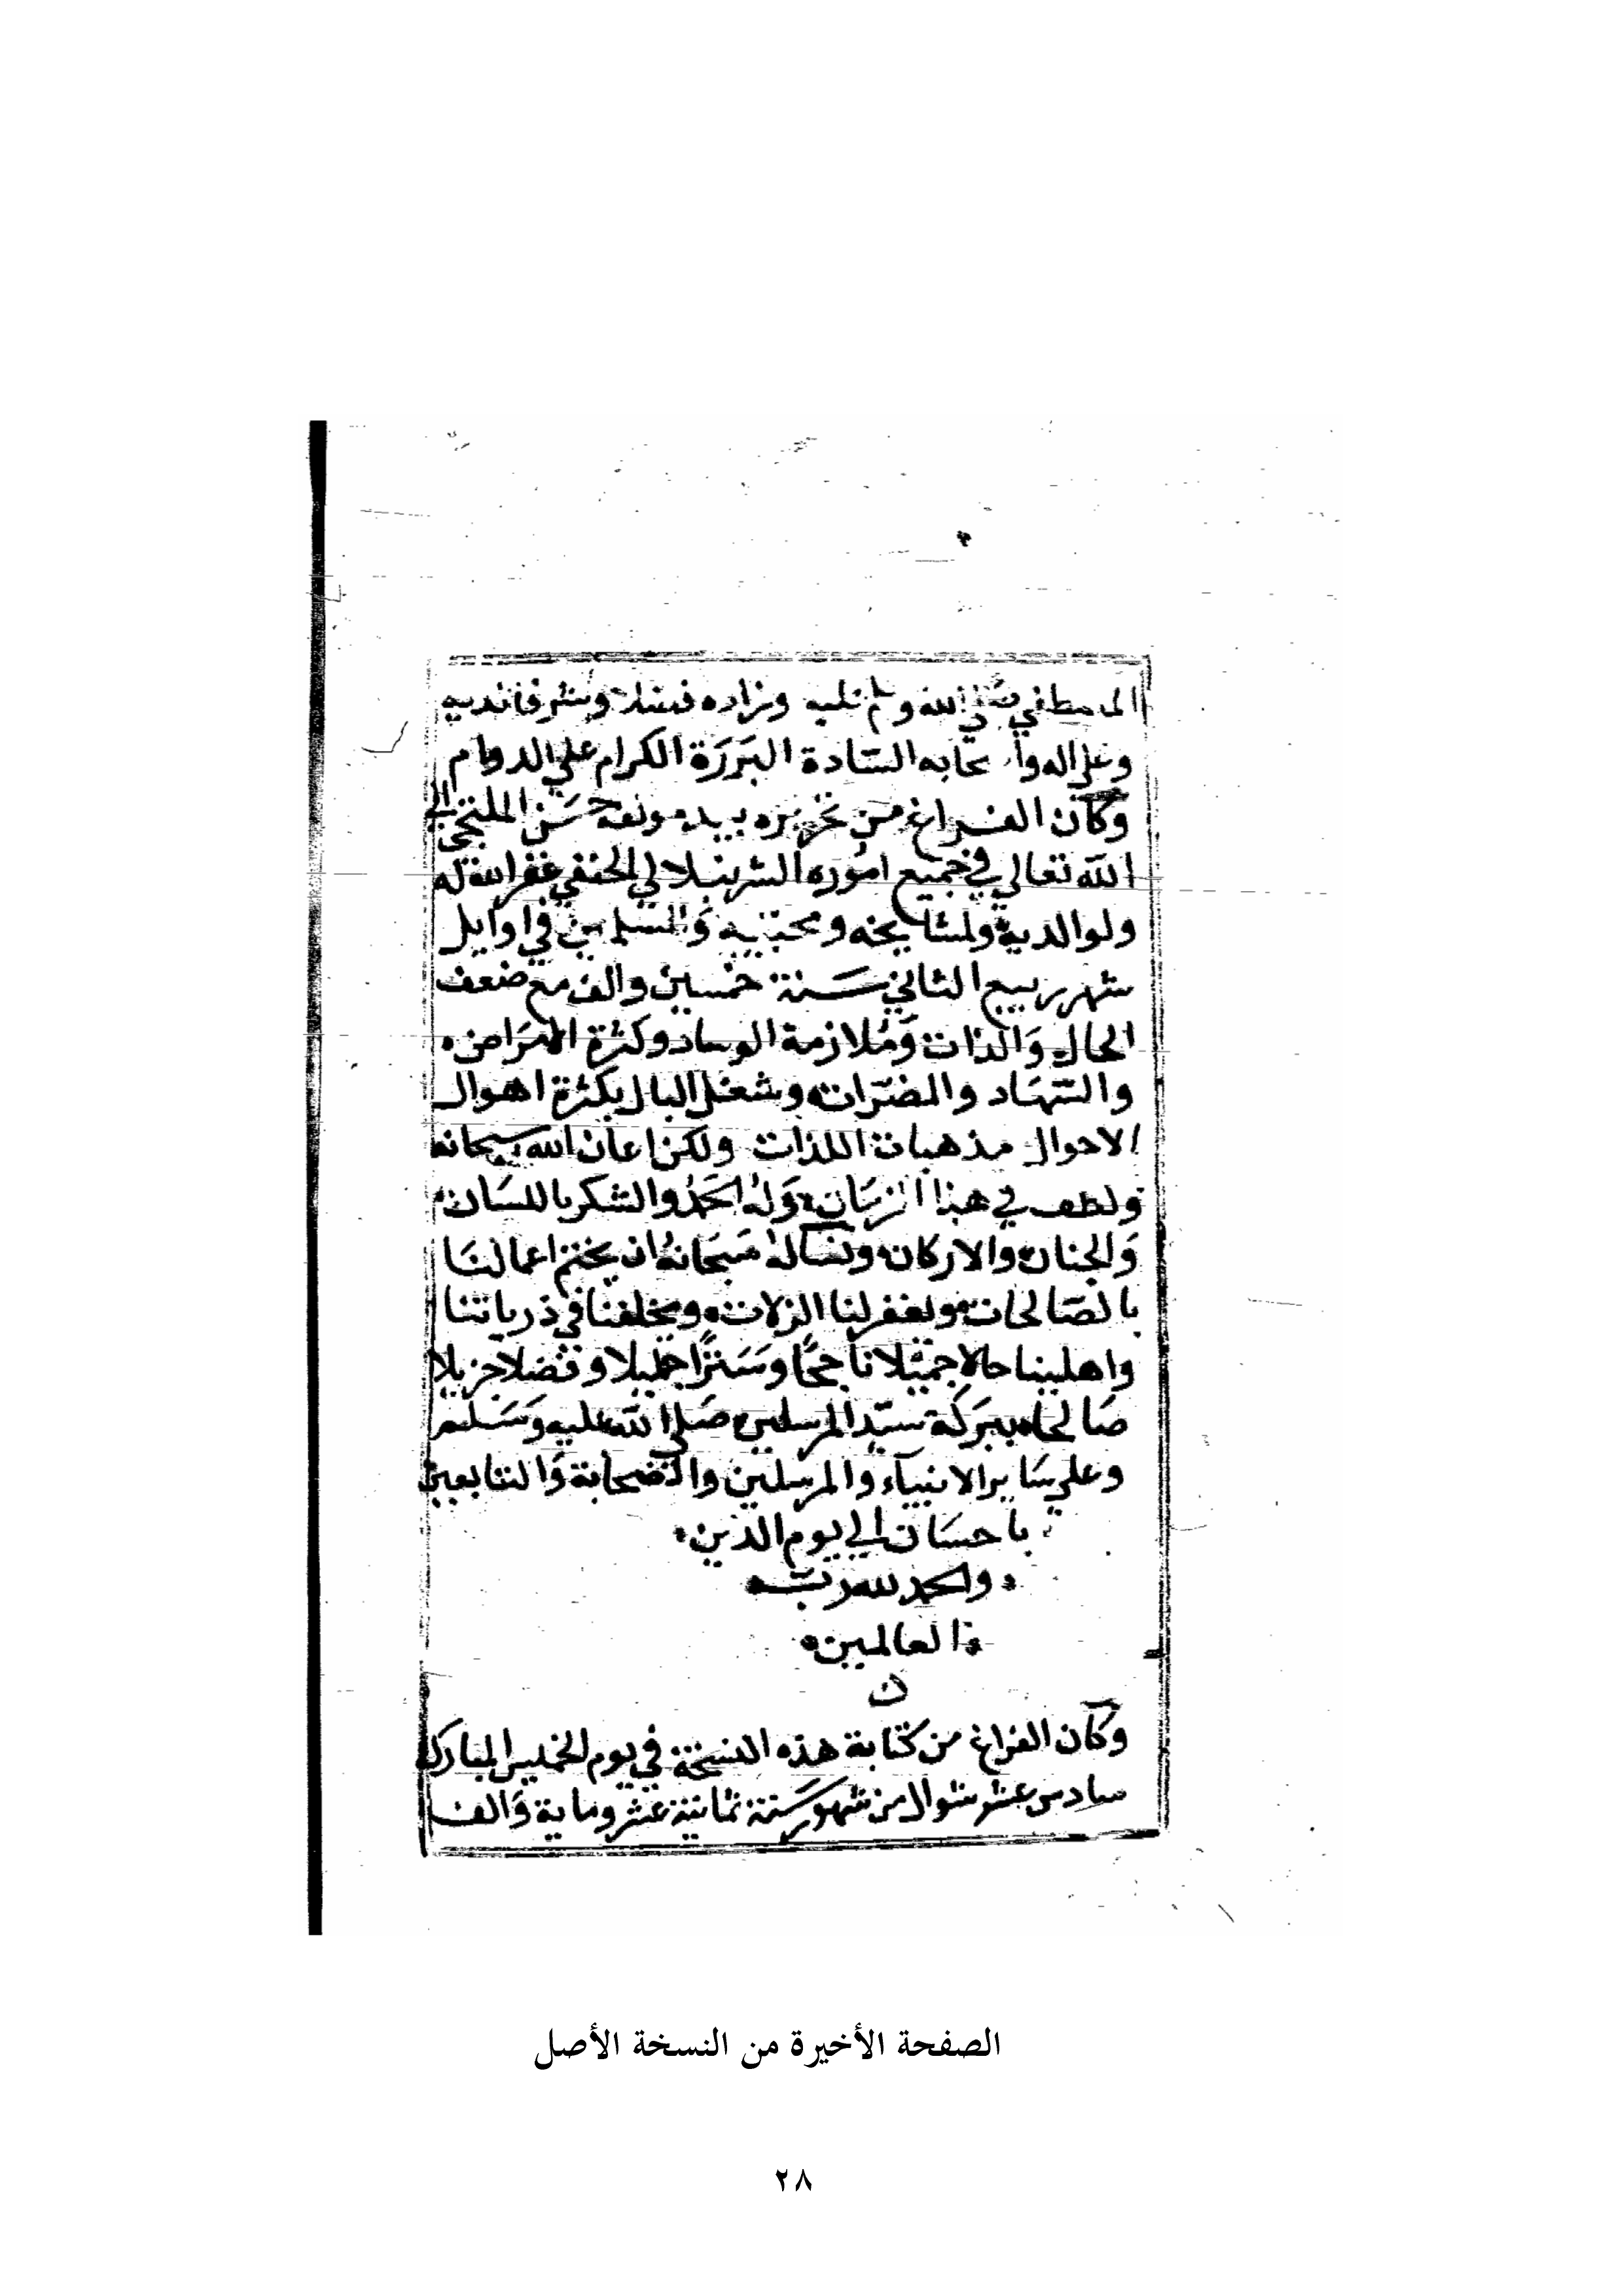 المصطفي صلي الله وسلم عليه وزاده فضلا وشرفا لديه
وعلي اله واصحابه السادة البررة الكرام علي الدوام
وكان الفراغ من تحريره بيد مولفه حسن الملتجي الي
الله تعالي في جميع اموره الشرنبلالي الحنفي غفر الله له
ولوالديه ولمشايخه ومحبيه والمسلمين في اوايل
شهر ربيع الثاني سنة خمسين والف مع ضعف
الحال والذات وملازمة الوساد وكثرة الامراض
والسهاد والمضرات وشغل البال بكثرة اهوال
الاحوال مذهبات اللذات ولكن اعان الله سبحانه
ولطف في هذا الزمان وله الحمد والشكر باللسان
والجنان والاركان ونساله سبحانه ان يختم اعمالنا
بالصالحات ويغفر لنا الزلات ويخلفنا في ذرياتنا
واهلينا حالا جميلا ناجحا وسترا جليلا وفضلا جزيلا
صالحا ببركة سيد المرسلين صلي الله عليه وسلم
وعلي ساير الانبياء والمرسلين والصحابة والتابعين
باحسان الي يوم الدين
والحمد لله رب
العالمين
ن
وكان الفراغ من كتابة هذه النسخة في يوم الخميس المبارك
سادس عشر شوال من شهور سنة ثمانية عشر وماية والف
الصفحة الأخيرة من النسخة الأصل
٢٨